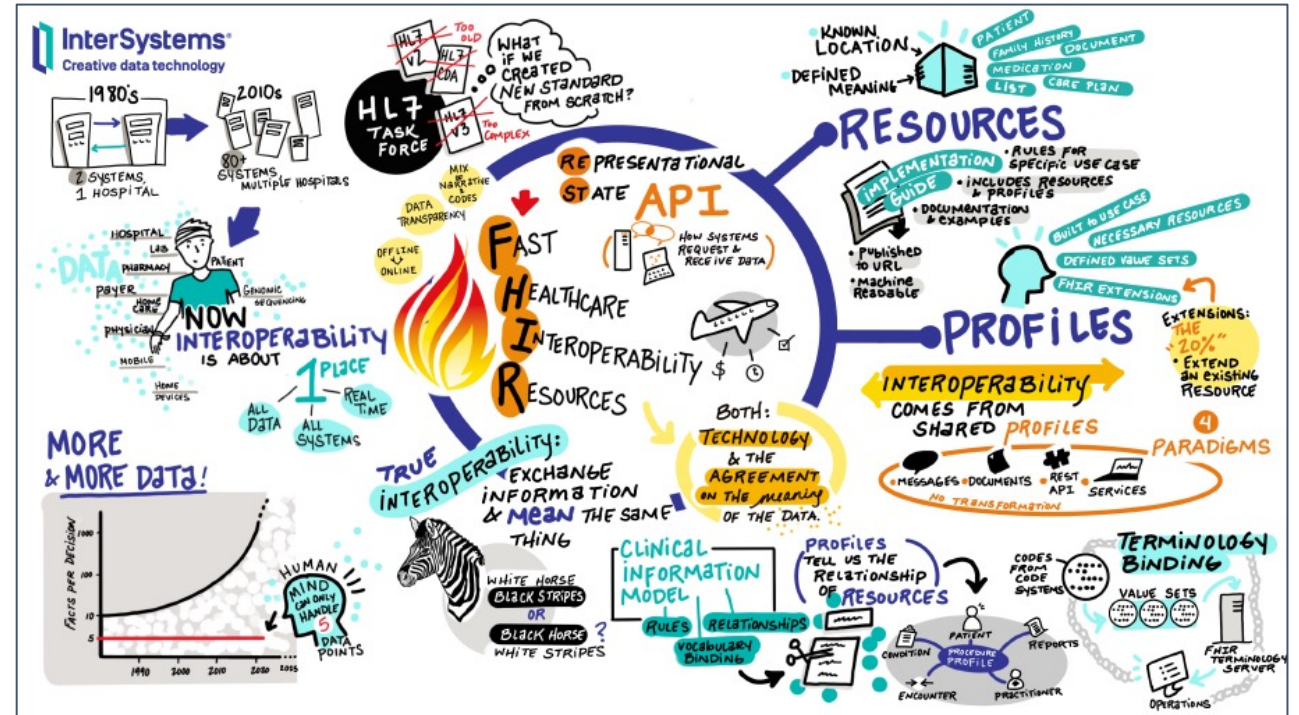 InterSystems®
Creative data technology
1980's
2 SYSTEMS,
1 HOSPITAL
2010s
80+
SYSTEMS,
MULTIPLE HOSPITALS
HL7
TASK
FORCE
HL7
V2
TOO
OLD
HL7
CDA
HL7
V3
TOO
COMPLEX
WHAT
IF WE
CREATED
NEW STANDARD
FROM SCRATCH?
DATA
HOSPITAL
LAB
PHARMACY
PAYER
HOME
CARE
PHYSICIAN
MOBILE
HOME
DEVICES
PATIENT
GENOMIC
SEQUENCING
NOW
INTEROPERABILITY
IS ABOUT
1 PLACE
ALL
DATA
ALL
SYSTEMS
REAL
TIME
MORE
& MORE DATA!
FACTS PER DECISION
1000
100
10
5
1990
2000
2010
2020
HUMAN
MIND
CAN ONLY
HANDLE
5
DATA
POINTS
MIX
OF
NARRATIVE
&
CODES
DATA
TRANSPARENCY
OFFLINE
ONLINE
REPRESENTATIONAL
STATE
API
HOW SYSTEMS
REQUEST &
RECEIVE DATA
FAST
HEALTHCARE
INTEROPERABILITY
RESOURCES
$
BOTH:
TECHNOLOGY
& THE
AGREEMENT
ON THE meaning
OF THE DATA.
TRUE
INTEROPERABILITY:
EXCHANGE
INFORMATION
& MEAN THE SAME
THING
WHITE HORSE
BLACK STRIPES
OR
BLACK HORSE
WHITE STRIPES
?
KNOWN
LOCATION
DEFINED
MEANING
PATIENT
FAMILY HISTORY
DOCUMENT
MEDICATION
LIST
CARE PLAN
RESOURCES
IMPLEMENTATION
GUIDE
• RULES FOR
SPECIFIC USE CASE
• INCLUDES RESOURCES
& PROFILES
• DOCUMENTATION
& EXAMPLES
• PUBLISHED
TO URL
• MACHINE
READABLE
BUILT TO USE CASE
NECESSARY RESOURCES
DEFINED VALUE SETS
FHIR EXTENSIONS
PROFILES
EXTENSIONS:
THE
"20%"
• EXTEND
AN EXISTING
RESOURCE
INTEROPERABILITY
COMES FROM
SHARED PROFILES
4
PARADIGMS
• MESSAGES
• DOCUMENTS
• REST
API
• SERVICES
NO TRANSFORMATION
CLINICAL
INFORMATION
MODEL
RULES
RELATIONSHIPS
VOCABULARY
BINDING
PROFILES
TELL US THE
RELATIONSHIP
OF RESOURCES
PATIENT
CONDITION
REPORTS
PROCEDURE
PROFILE
ENCOUNTER
PRACTITIONER
TERMINOLOGY
BINDING
CODES
FROM
CODE
SYSTEMS
VALUE SETS
FHIR
TERMINOLOGY
SERVER
OPERATIONS